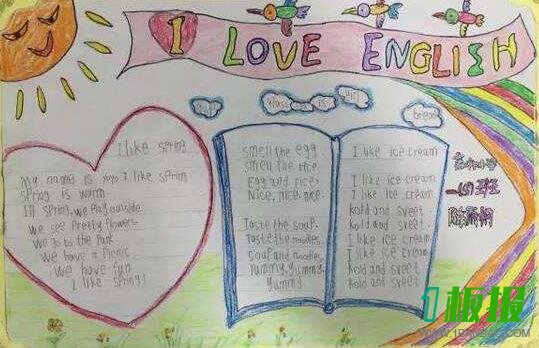 1 LOVE ENGLISH
I like spring
My name is yoyo I like spring
Spring is warm
In spring, we play outside
we see Pretty flowers
We go to the Park
We have a Picnic
We have fun
I like spring!
Smell the egg.
smell the rice
Egg and rice,
Nice, nice, nice.
Taste the soup.
Taste the noodles.
Soup and noodles
Yummy, Yummy,
Yummy
I like ice cream
I like ice cream
I like ice cream.
kold and sveet.
kold and sveet.
I like ice cream
I like ice cream.
kold and sveet
kold and sveet.
is
bread
一(4)班
1板报
WWW.1BANBAO.COM